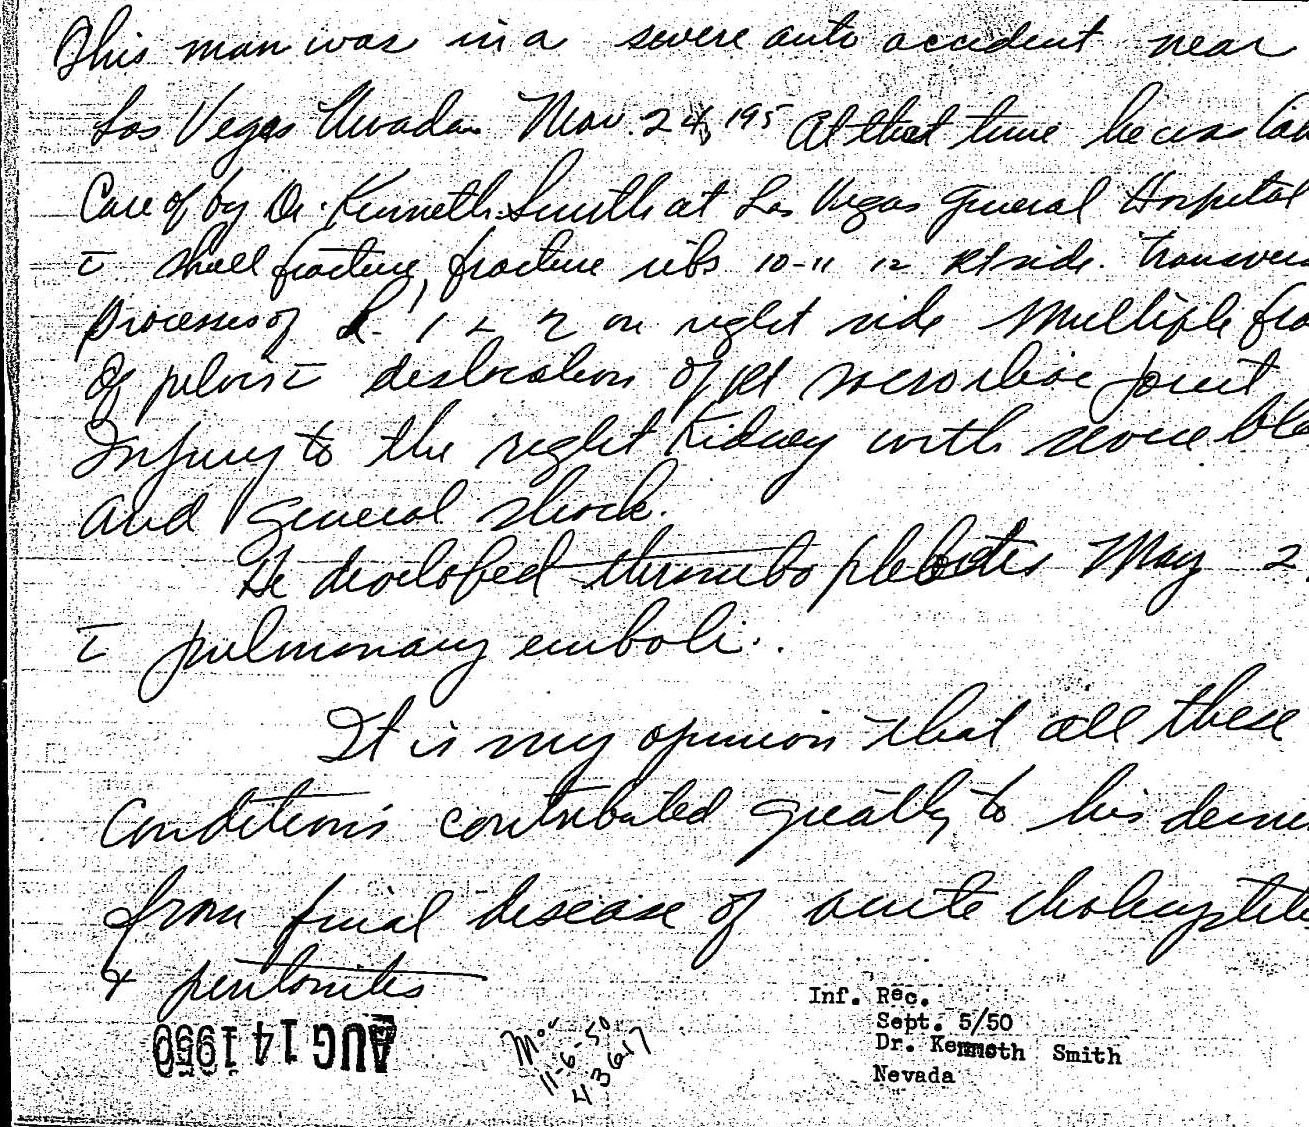 This man was in a severe auto accident near
Las Vegas Nevada Mar. 24, 195 At that time he was
Care of by Dr. Kenneth Smith at Las Vegas General Hospital
c̄ skull fracture, fracture ribs 10-11 12 Rt side. Transvers
processes of L- 1 & 2 on right side Multiple fra
Of pelvis c̄ dislocation of Rt sacroiliac joint
Injury to the right Kidney with severe ble
and general shock.
He developed thrombo phlebites May 2
c̄ pulmonary emboli.
It is my opinion that all these
Conditions contributed greatly to his demi
from final disease of acute cholecystitis
& peritonites
AUG 14 1950
Mor
11-6-50
43617
Inf. Rec.
Sept. 5/50
Dr. Kenneth Smith
Nevada